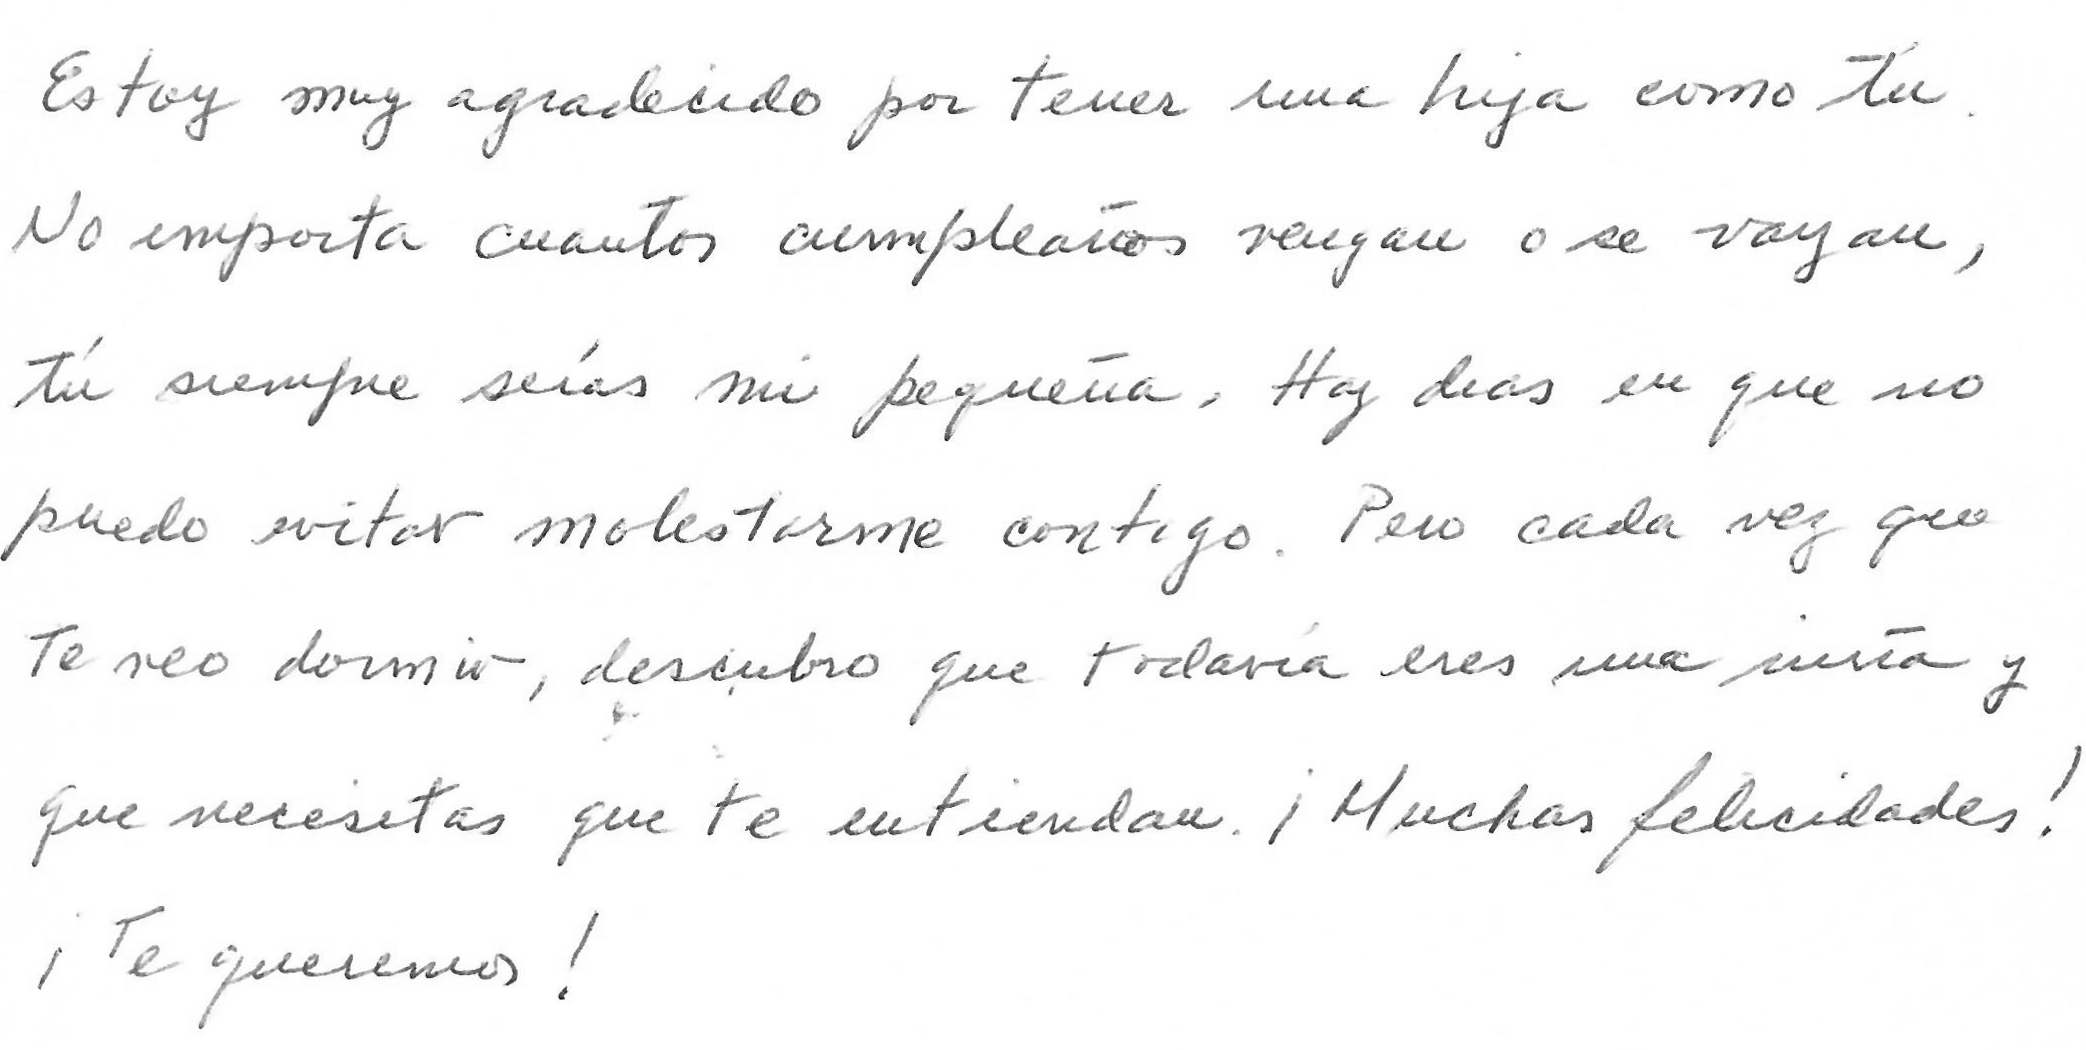 Estoy muy agradecido por tener una hija como tú.
No importa cuantos cumpleaños vengan o se vayan,
tú siempre serás mi pequeña. Hay dias en que no
puedo evitar molestarme contigo. Pero cada vez que
te veo dormir, descubro que todavía eres una niña y
que necesitas que te entiendan. ¡Muchas felicidades!
¡Te queremos!